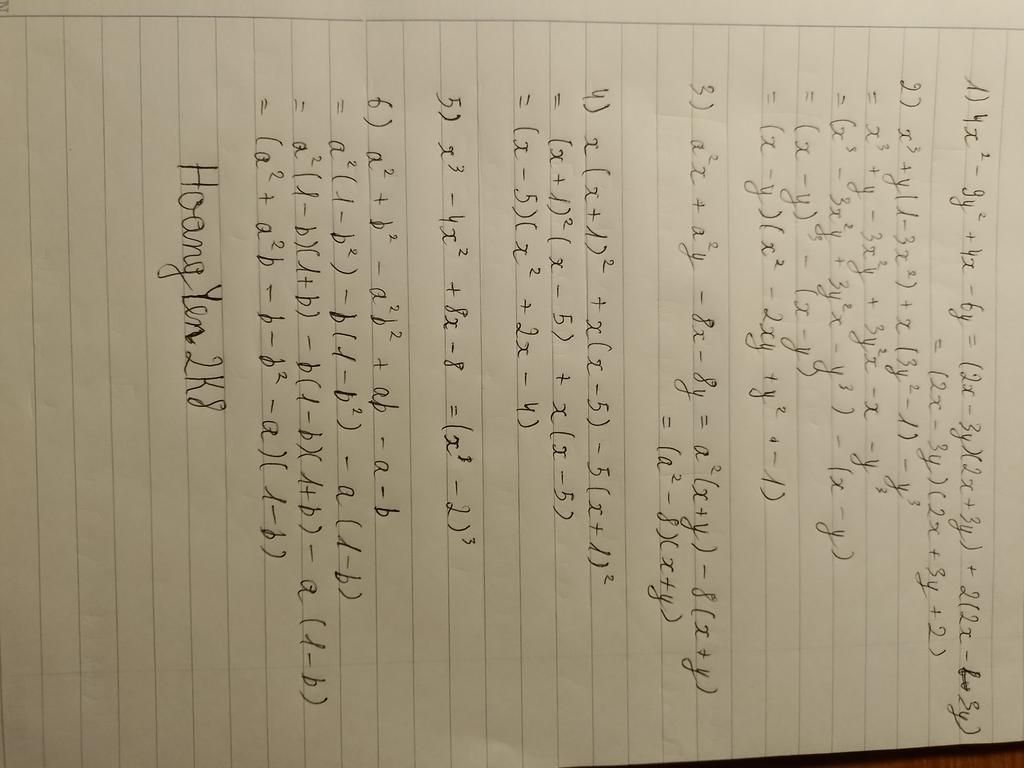 1) 4x² - 9y² + 4x - 6y = (2x - 3y)(2x + 3y) + 2(2x - 3y)
= (2x - 3y)(2x + 3y + 2)
2) x³ + y(1 - 3x²) + x(3y² - 1) - y³
= x³ + y - 3x²y + 3y²x - x - y³
= (x³ - 3x²y + 3y²x - y³) - (x - y)
= (x - y)³ - (x - y)
= (x - y)(x² - 2xy + y² - 1)
3) a²x + a²y - 8x - 8y = a²(x+y) - 8(x+y)
= (a² - 8)(x+y)
4) x(x+1)² + x(x-5) - 5(x+1)²
= (x+1)²(x-5) + x(x-5)
= (x-5)(x² + 2x - 4)
5) x³ - 4x² + 8x - 8 = (x³ - 2)³
6) a² + b² - a²b² + ab - a - b
= a²(1-b²) - b(1-b²) - a(1-b)
= a²(1-b)(1+b) - b(1-b)(1+b) - a(1-b)
= (a² + a²b - b - b² - a)(1-b)
Hoang Yen 2K8